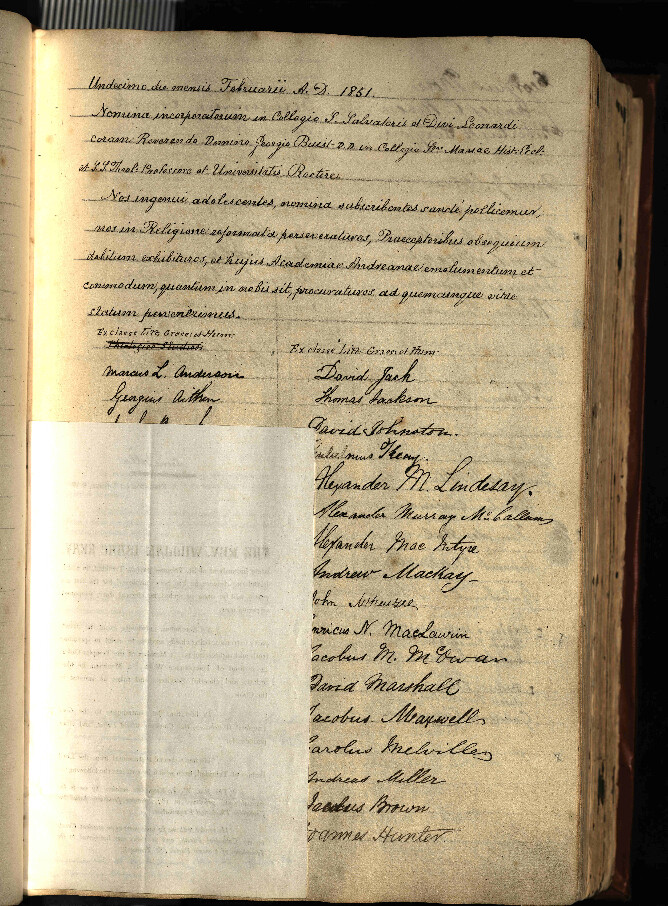 Undecimo die mensis Februarii A. D. 1851.
Nomina incorporatorum in Collegio S. Salvatoris et Divi Leonardi
coram Reverendo Domino Georgio Buist D.D. in Collegio Stæ Mariae Hist. Eccl.
et S.S. Theol. Professore et Universitatis Rectore.
Nos ingenui adolescentes, nomina subscribentes sancte pollicemur,
nos in Religione reformatâ perseveraturos, Praeceptoribus obsequium
debitum exhibituros, et hujus Academiae Andreanae emolumentum et
commodum, quantum in nobis sit, procuraturos, ad quemcunque vitae
statum pervenerimus.
Ex classe Litt. Graec. et Hum.
Marcus L. Anderson
Georgius Aitken
Ex classe Litt. Graec. et Hum.
David Jack
Thomas Jackson
David Johnston.
Alexander M. Lindesay.
Alexander Murray McCallum
Alexander Mac Intyre
Andrew Mackay
John McKenzie
Henricus N. MacLaurin
Jacobus M. McOwan
David Marshall
Jacobus Maxwell
Carolus Melville
Andreas Miller
Jacobus Brown
Joannes Hunter